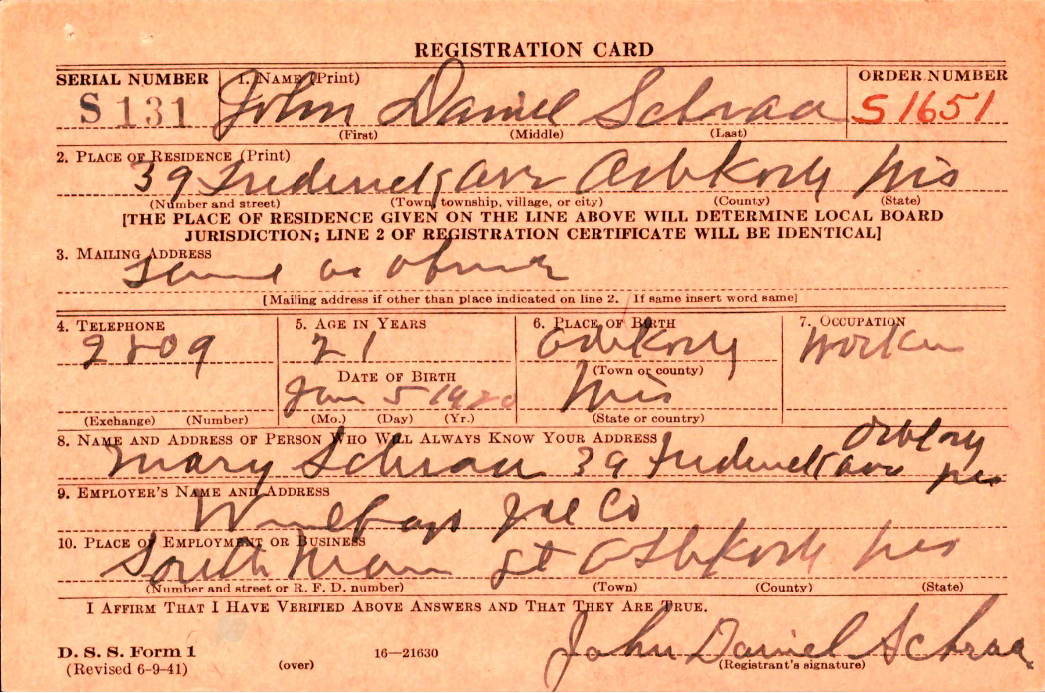 REGISTRATION CARD
SERIAL NUMBER 1. NAME (Print) ORDER NUMBER
S 131 John Daniel Schraa S1651
(First) (Middle) (Last)
2. PLACE OF RESIDENCE (Print)
39 Frederick Ave Oshkosh Wis
(Number and street) (Town, township, village, or city) (County) (State)
[THE PLACE OF RESIDENCE GIVEN ON THE LINE ABOVE WILL DETERMINE LOCAL BOARD
JURISDICTION; LINE 2 OF REGISTRATION CERTIFICATE WILL BE IDENTICAL]
3. MAILING ADDRESS
Same as above
[Mailing address if other than place indicated on line 2. If same insert word same]
4. TELEPHONE 5. AGE IN YEARS 6. PLACE OF BIRTH 7. OCCUPATION
2809 21 Oshkosh Worker
(Town or county)
DATE OF BIRTH
Jan 5 1920 Wis
(Exchange) (Number) (Mo.) (Day) (Yr.) (State or country)
8. NAME AND ADDRESS OF PERSON WHO WILL ALWAYS KNOW YOUR ADDRESS
Mary Schraa 39 Frederick Ave Oshkosh Wis
9. EMPLOYER'S NAME AND ADDRESS
Co
10. PLACE OF EMPLOYMENT OR BUSINESS
South Main St Oshkosh Wis
(Number and street or R. F. D. number) (Town) (County) (State)
I AFFIRM THAT I HAVE VERIFIED ABOVE ANSWERS AND THAT THEY ARE TRUE.
John Daniel Schraa
D. S. S. Form 1 16—21630
(Revised 6-9-41) (over) (Registrant's signature)